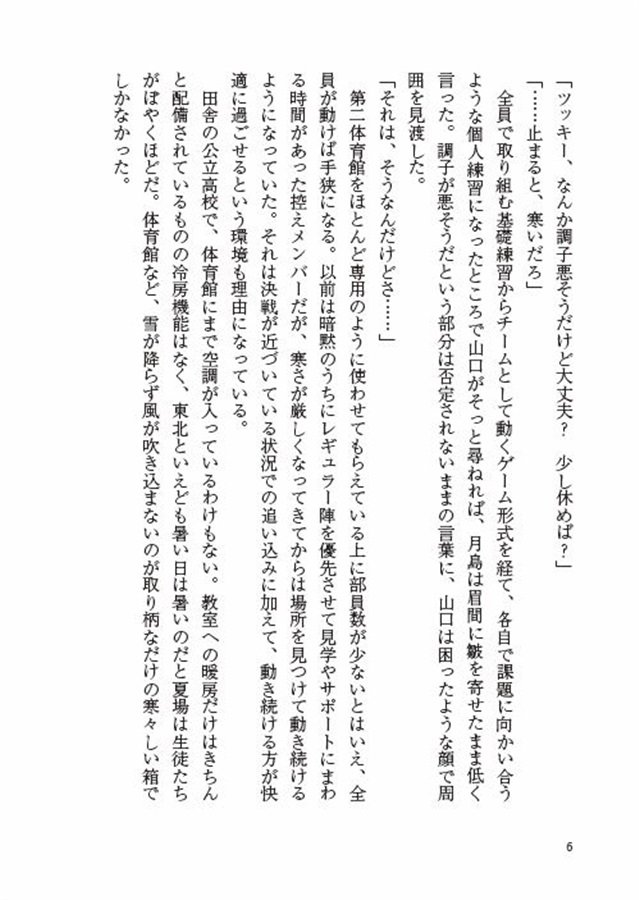 「ツッキー、なんか調子悪そうだけど大丈夫？　少し休めば？」
「……止まると、寒いだろ」
　全員で取り組む基礎練習からチームとして動くゲーム形式を経て、各自で課題に向かい合う
ような個人練習になったところで山口がそっと尋ねれば、月島は眉間に皺を寄せたまま低く
言った。調子が悪そうだという部分は否定されないままの言葉に、山口は困ったような顔で周
囲を見渡した。
「それは、そうなんだけどさ……」
　第二体育館をほとんど専用のように使わせてもらえている上に部員数が少ないとはいえ、全
員が動けば手狭になる。以前は暗黙のうちにレギュラー陣を優先させて見学やサポートにまわ
る時間があった控えメンバーだが、寒さが厳しくなってきてからは場所を見つけて動き続ける
ようになっていた。それは決戦が近づいている状況での追い込みに加えて、動き続ける方が快
適に過ごせるという環境も理由になっている。
　田舎の公立高校で、体育館にまで空調が入っているわけもない。教室への暖房だけはきちん
と配備されているものの冷房機能はなく、東北といえども暑い日は暑いのだと夏場は生徒たち
がぼやくほどだ。体育館など、雪が降らず風が吹き込まないのが取り柄なだけの寒々しい箱で
しかなかった。
6